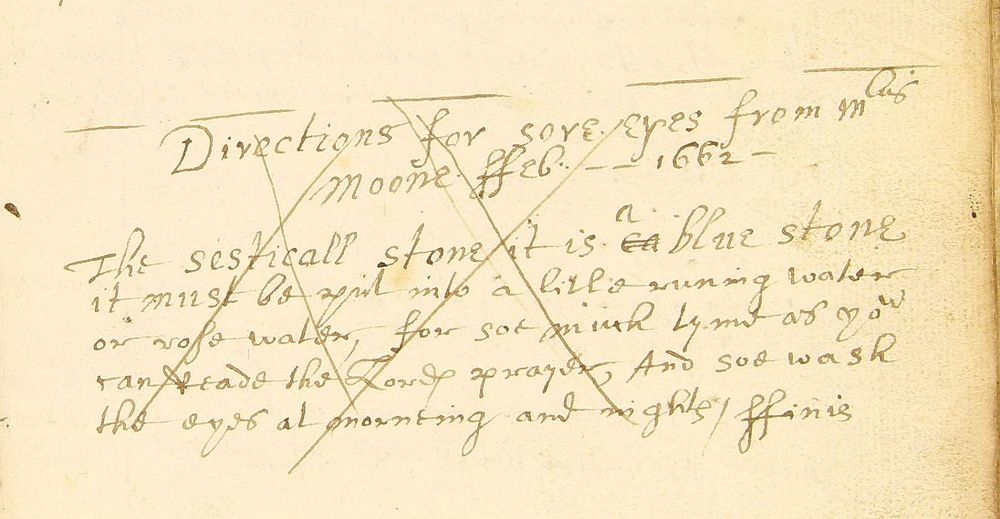 Directions for sore eyes from Mris
Moone ffeb: -- 1662 -
The sesticall stone it is a blue stone
it must be put into a litle runing water
or rose water, for soe much tyme as yow
can reade the Lords prayer, And soe wash
the eyes at morneing and nights / ffinis